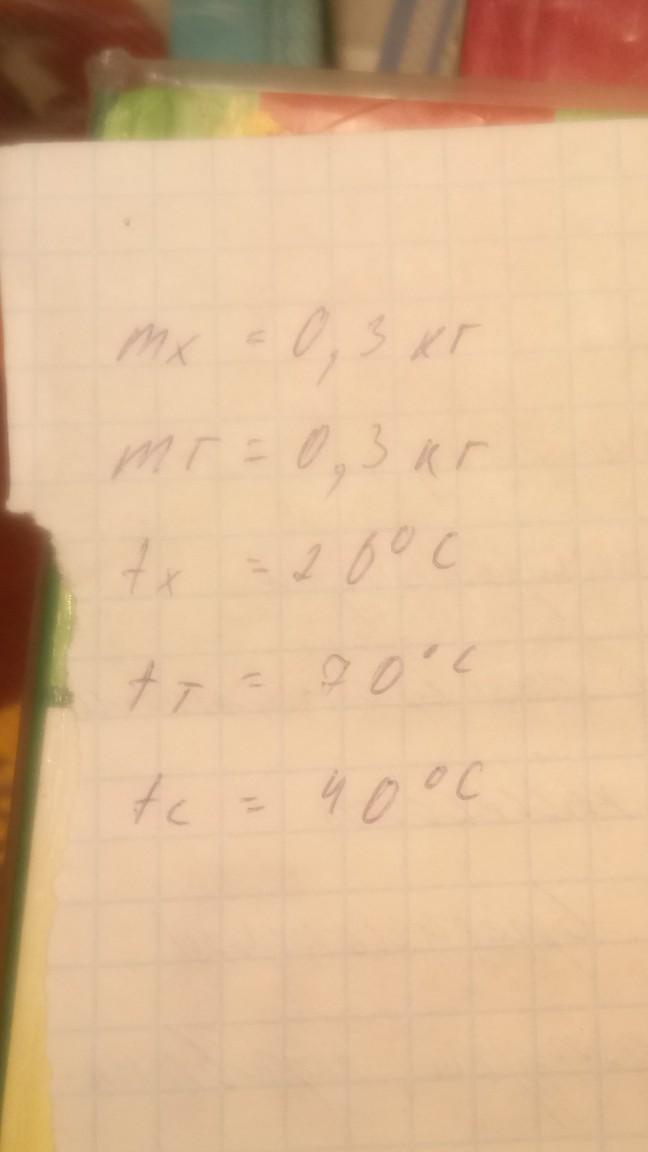 mх = 0,3 кг
mг = 0,3 кг
tх = 26°C
tт = 70°C
tс = 40°C